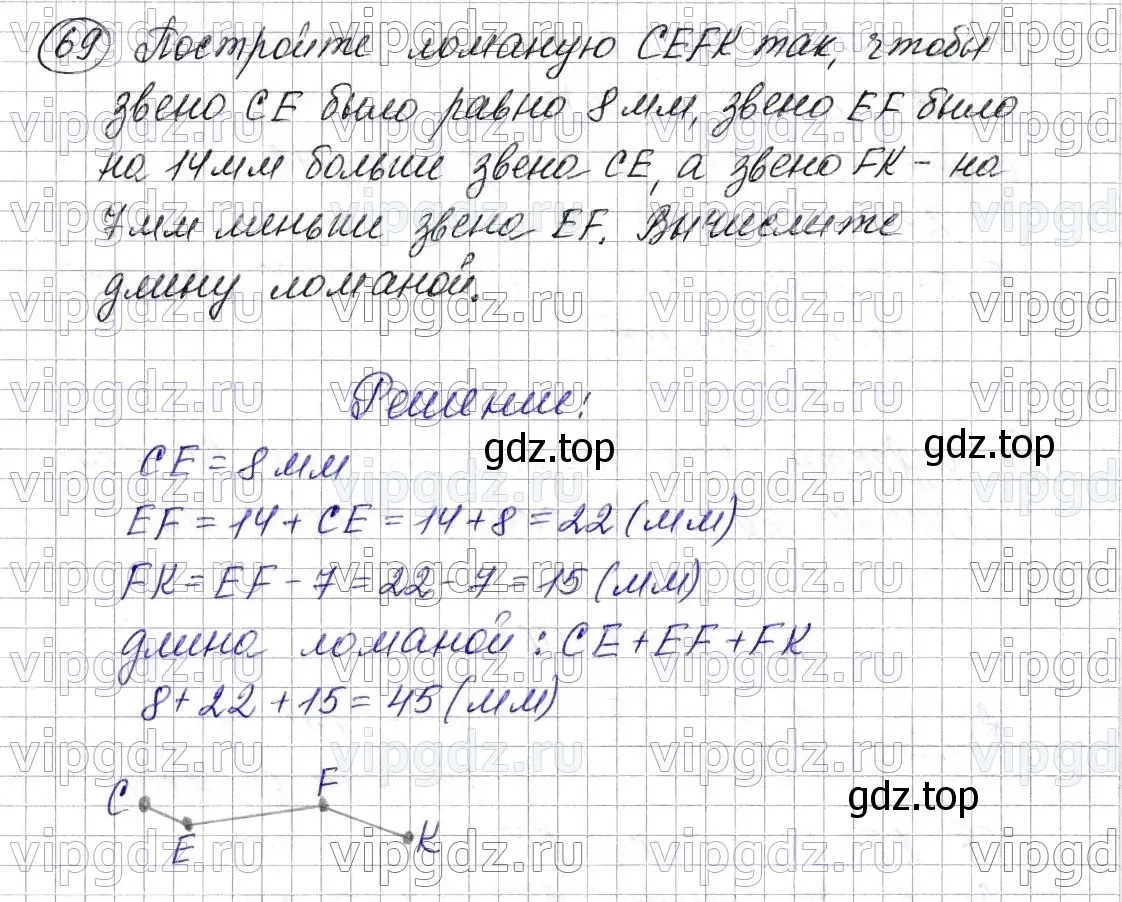 69 Постройте ломаную CEFK так, чтобы
звено CE было равно 8 мм, звено EF было
на 14 мм больше звена CE, а звено FK - на
7 мм меньше звена EF. Вычислите
длину ломаной.
Решение:
CE = 8 мм
gdz.top
gdz.top
EF = 14 + CE = 14 + 8 = 22 (мм)
FK = EF - 7 = 22 - 7 = 15 (мм)
длина ломаной: CE + EF + FK
8 + 22 + 15 = 45 (мм)
C
E
F
K
gdz.top
vipgdz.ru